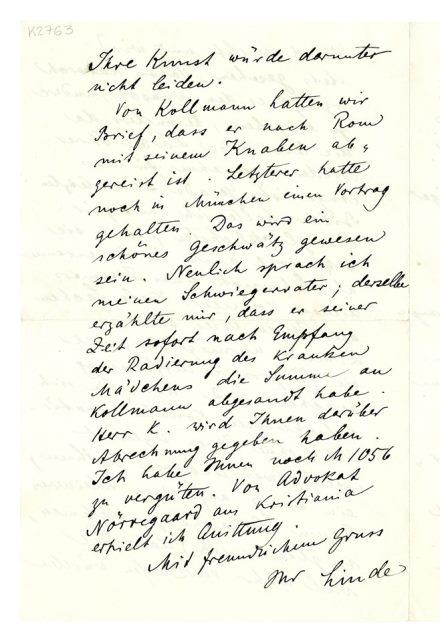 K2763
Ihre Kunst würde darunter
nicht leiden.
Von Kollmann hatten wir
Brief, dass er nach Rom
mit seinem Knaben ab„
gereist ist. Letzterer hatte
noch in München einen Vortrag
gehalten. Das wird ein
schönes Geschwätz gewesen
sein. Neulich sprach ich
meinen Schwiegervater; derselbe
erzählte mir, dass er seiner
Zeit sofort nach Empfang
der Radierung des Kranken
Mädchens die Summe an
Kollmann abgesandt habe.
Herr K. wird Ihnen darüber
Abrechnung gegeben haben.
Ich habe Ihnen noch M 1056
zu vergüten. Von Advokat
Nörregaard aus Kristiania
erhielt ich Quittung.
Mit freundlichem Gruss
Ihr Linde